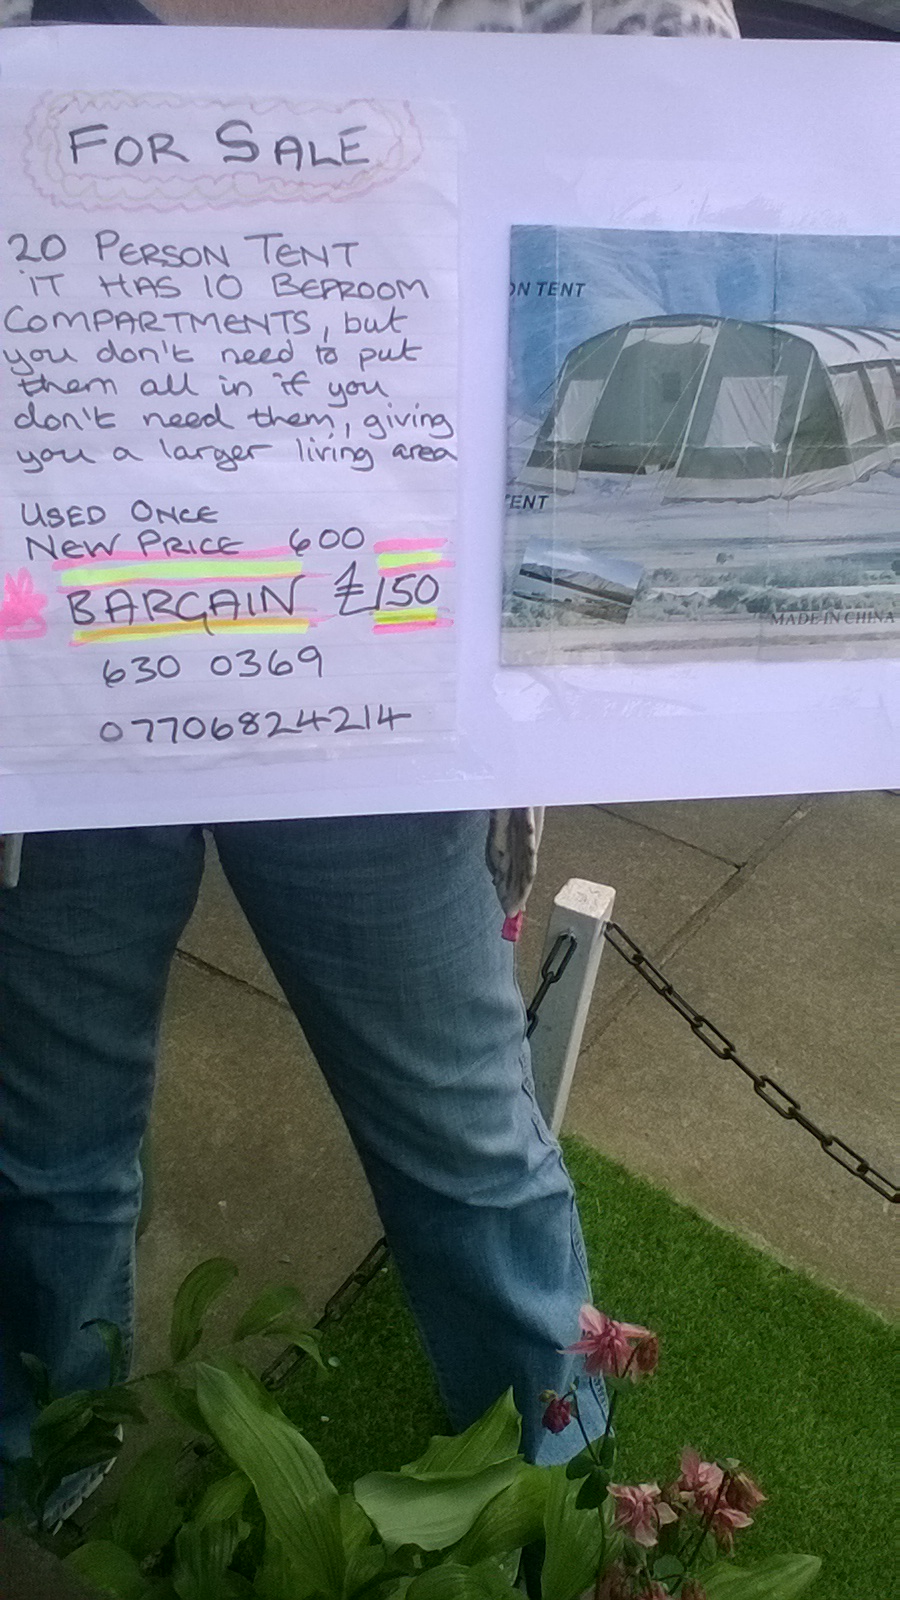 FOR SALE
20 PERSON TENT
IT HAS 10 BEDROOM
COMPARTMENTS, but
you don't need to put
them all in if you
don't need them, giving
you a larger living area
USED ONCE
NEW PRICE 600
BARGAIN £150
630 0369
07706824214
ON TENT
TENT
MADE IN CHINA